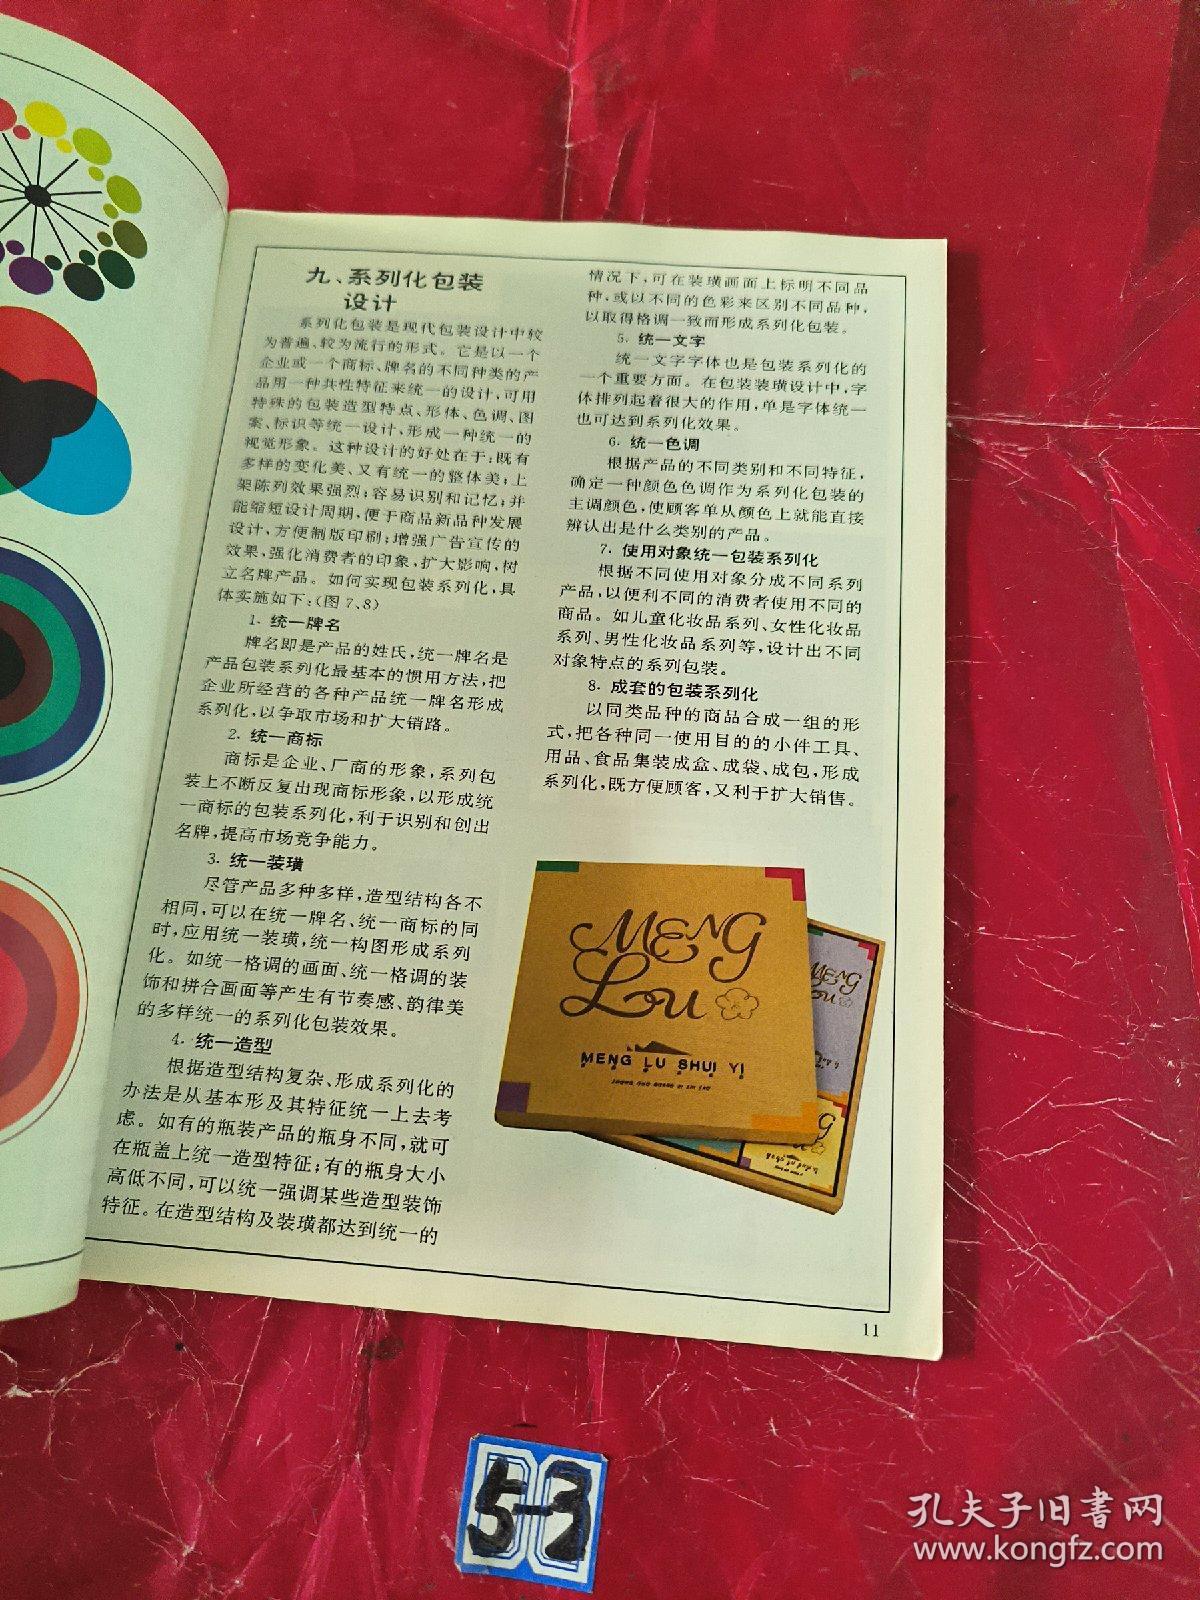 九、系列化包装
设计
系列化包装是现代包装设计中较
为普遍、较为流行的形式。它是以一个
企业或一个商标、牌名的不同种类的产
品用一种共性特征来统一的设计,可用
特殊的包装造型特点、形体、色调、图
案、标识等统一设计,形成一种统一的
视觉形象。这种设计的好处在于:既有
多样的变化美、又有统一的整体美;上
架陈列效果强烈;容易识别和记忆;并
能缩短设计周期,便于商品新品种发展
设计,方便制版印刷;增强广告宣传的
效果,强化消费者的印象,扩大影响,树
立名牌产品。如何实现包装系列化,具
体实施如下:(图7、8)
1. 统一牌名
牌名即是产品的姓氏,统一牌名是
产品包装系列化最基本的惯用方法,把
企业所经营的各种产品统一牌名形成
系列化,以争取市场和扩大销路。
2. 统一商标
商标是企业、厂商的形象,系列包
装上不断反复出现商标形象,以形成统
一商标的包装系列化,利于识别和创出
名牌,提高市场竞争能力。
3. 统一装璜
尽管产品多种多样,造型结构各不
相同,可以在统一牌名、统一商标的同
时,应用统一装璜,统一构图形成系列
化。如统一格调的画面、统一格调的装
饰和拼合画面等产生有节奏感、韵律美
的多样统一的系列化包装效果。
4. 统一造型
根据造型结构复杂、形成系列化的
办法是从基本形及其特征统一上去考
虑。如有的瓶装产品的瓶身不同,就可
在瓶盖上统一造型特征;有的瓶身大小
高低不同,可以统一强调某些造型装饰
特征。在造型结构及装璜都达到统一的
情况下,可在装璜画面上标明不同品
种,或以不同的色彩来区别不同品种,
以取得格调一致而形成系列化包装。
5. 统一文字
统一文字字体也是包装系列化的
一个重要方面。在包装装璜设计中,字
体排列起着很大的作用,单是字体统一
也可达到系列化效果。
6. 统一色调
根据产品的不同类别和不同特征,
确定一种颜色色调作为系列化包装的
主调颜色,使顾客单从颜色上就能直接
辨认出是什么类别的产品。
7. 使用对象统一包装系列化
根据不同使用对象分成不同系列
产品,以便利不同的消费者使用不同的
商品。如儿童化妆品系列、女性化妆品
系列、男性化妆品系列等,设计出不同
对象特点的系列包装。
8. 成套的包装系列化
以同类品种的商品合成一组的形
式,把各种同一使用目的的小件工具、
用品、食品集装成盒、成袋、成包,形成
系列化,既方便顾客,又利于扩大销售。
MENG
Lou
MENG LU SHUI YI
MENG
Lou
11
5-3
孔夫子旧书网
www.kongfz.com